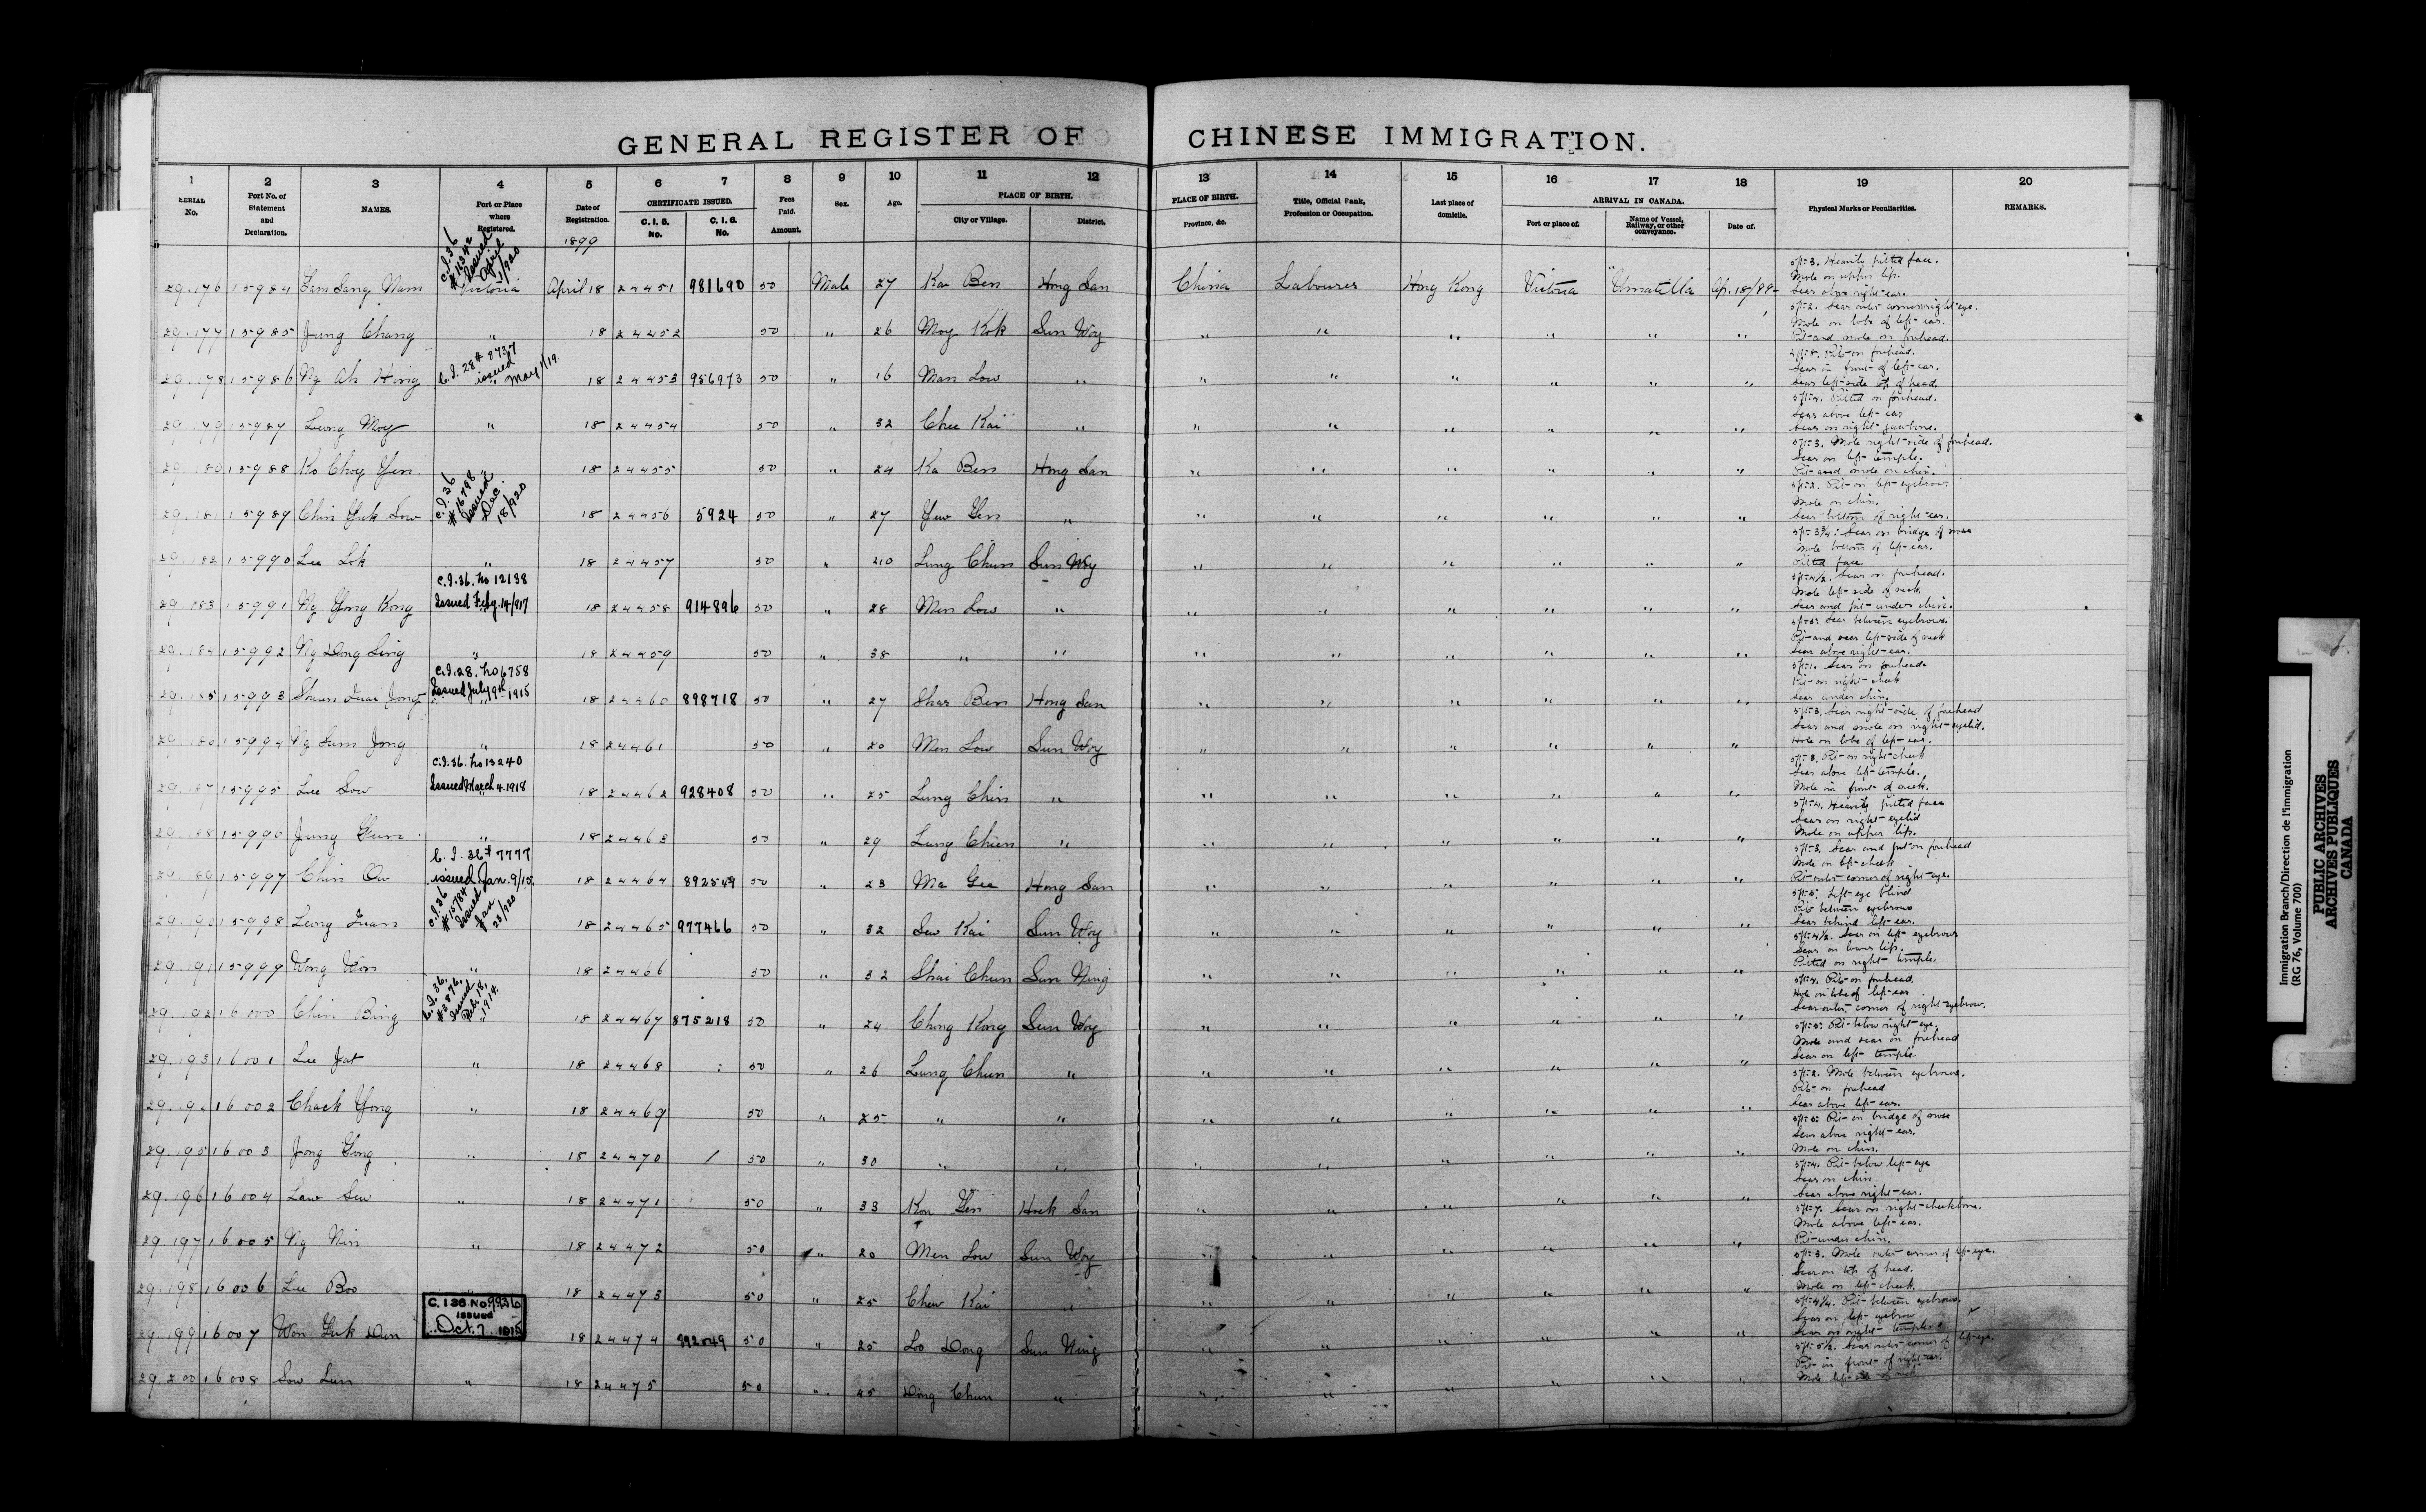 GENERAL REGISTER OF CHINESE IMMIGRATION.
1 2 3 4 5 6 7 8 9 10 11 12 13 14 15 16 17 18 19 20
SERIAL No. Port No. of Statement and Declaration. NAMES. Port or Place where Registered. Date of Registration. CERTIFICATE ISSUED. C. I. 5. No. C. I. 6. No. Fees Paid. Amount. Sex. Age. PLACE OF BIRTH. City or Village. District. PLACE OF BIRTH. Province, &c. Title, Official Rank, Profession or Occupation. Last place of domicile. ARRIVAL IN CANADA. Port or place of. Name of Vessel, Railway, or other conveyance. Date of. Physical Marks or Peculiarities. REMARKS.
1899
C.I.36 Issued April 1/920
29.176 15984 Lam Sang Nam Victoria April 18 24451 981690 50 Male 27 Kai Ben Hong San China Labourer Hong Kong Victoria "Umatilla Ap. 18/99
5ft-3. Heavily pitted face.
Mole on upper lip.
Scar above right-ear.
29.177 15985 Jung Chang " 18 24452 50 " 26 Moy Kok Sun Woy " " " " " "
5ft-2. Scar outer corner right-eye.
Mole on lobe of left-ear.
Pit-and mole on forehead.
C.I. 28 # 8737 issued May 1/19
29.178 15986 Ng Ah Hing " 18 24453 956973 50 " 16 Man Low " " " " " " "
Pit-on forehead.
Scar in front-of left-ear.
Scar left-side top of head.
29.179 15987 Leong Moy " 18 24454 50 " 32 Chee Kai " " " " " " "
Pitted on forehead.
Scar above left-ear
Scar on right-jawbone.
29.180 15988 Ko Choy Yen 18 24455 50 " 24 Ka Ben Hong San " " " " " "
5ft-3. Mole right-side of forehead.
Scar on left-temple.
Pit-and mole on chin.
C.I.36 #16798 Issued Dec. 18/920
29.181 15989 Chin Yuk Low 18 24456 5924 50 " 27 Yew Gen " " " " " " "
5ft-2. Pit-on left-eyebrow.
Mole on chin.
Scar bottom of right-ear.
29.182 15990 Lee Lok " 18 24457 50 " 20 Lung Chun Sun Woy " " " " " "
5ft-3¾. Scar on bridge of nose
Mole bottom of left-ear.
Pitted face.
C.I.36. No 12138
Issued Feby. 14/917
29.183 15991 Ng Yong Kong 18 24458 914896 50 " 28 Men Low " " " " " " "
5ft-4½. Scar on forehead.
Mole left-side of neck.
Scar and pit-under chin.
29.184 15992 Ng Dong Ling " 18 24459 50 " 38 " " " " " " " "
Scar between eyebrows.
Pit-and scar left-side of neck
Scar above right-ear.
C.I.28. No 6758
Issued July 9th 1915
29.185 15993 18 24460 898718 50 " 27 Shar Ben Hong San " " " " " "
5ft-1. Scar on forehead
Pit-on right-cheek
Scar under chin.
29.186 15994 Ng Sum Jong " 18 24461 50 " 20 Men Low Sun Woy " " " " " "
5ft-3. Scar right-side of forehead
Scar and mole on right-eyelid.
Hole on lobe of left-ear.
C.I.36. No 13240
Issued March 4. 1918
29.187 15995 Lee Sow 18 24462 928408 50 " 25 Lung Chin " " " " " " "
5ft-3. Pit-on right-cheek
Scar above left-temple.
Mole in front-of neck.
29.188 15996 Jung Gun " 18 24463 50 " 29 Lung Chun " " " " " " "
5ft-4. Heavily pitted face
Scar on right-eyelid
Mole on upper lip.
C.I. 36 # 7777
issued Jan. 9/15.
29.189 15997 Chin Ow 18 24464 892549 50 " 23 Ma Gee Hong San " " " " " "
5ft-3. Scar and pit-on forehead
Mole on left-cheek
Pit-outer corner of right-eye.
C.I.36 #15784 Issued Jan 23/920
29.190 15998 Leong Quan 18 24465 977466 50 " 32 Sew Kai Sun Woy " " " " " "
Left-eye blind
Pit-between eyebrows
Scar behind left-ear.
29.191 15999 Wong Won " 18 24466 50 " 32 Shai Chun Sun Ning " " " " " "
5ft-4½. Scar on left-eyebrow
Scar on lower lip.
Pitted on right-temple.
C.I. 36. #3876. Issued Feb. 18, 1914.
29.192 16000 Chin Bing 18 24467 875218 50 " 24 Ching Kong Sun Woy " " " " " "
5ft-4. Pit-on forehead.
Hole on lobe of left-ear
Scar outer corner of right-eyebrow.
29.193 16001 Lee Yat " 18 24468 50 " 26 Lung Chun " " " " " " "
Pit-below right-eye.
Mole and scar on forehead
Scar on left-temple.
29.194 16002 Chack Yong " 18 24469 50 " 25 " " " " " " " "
5ft-2. Mole between eyebrows.
Pit-on forehead
Scar above left-ear.
29.195 16003 Jong Gong " 18 24470 50 " 30 " " " " " " " "
Pit-on bridge of nose
Scar above right-ear.
Mole on chin.
29.196 16004 Law Sew " 18 24471 50 " 33 Kon Gen Hock San " " " " " "
5ft-4. Pit-below left-eye
Scar on chin
Scar above right-ear.
29.197 16005 Ng Nin " 18 24472 50 " 20 Men Low Sun Woy " " " " " "
5ft-7. Scar on right-cheekbone.
Mole above left-ear.
Pit-under chin.
29.198 16006 Lee Boo 18 24473 50 " 25 Chew Kai " " " " " " "
5ft-3. Mole outer corner of left-eye.
Scar on top of head.
Mole on left-cheek.
C.I 36 No. 9936
Issued
Oct. 7 1915
29.199 16007 Won Yuk Den 18 24474 50 " 25 Loo Dong Sun Ning " " " " " "
5ft-4¼. Pit-between eyebrows.
Scar on left-eyebrow
Scar on right-temple.
29.200 16008 Sow Lun " 18 24475 50 " 45 Dong Chun " " " " " " "
5ft-5½. Scar outer-corner of left-eye.
Pit-in front-of right-ear.
Mole left-side of neck
Immigration Branch/Direction de l'immigration
(RG 76, Volume 700)
PUBLIC ARCHIVES
ARCHIVES PUBLIQUES
CANADA